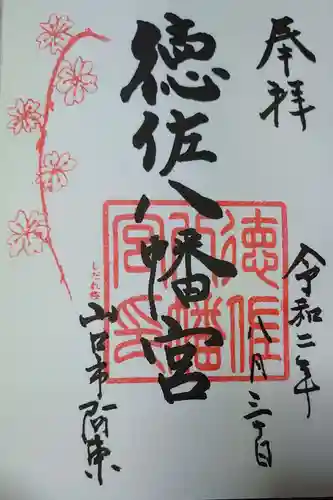 奉拝
令和二年
八月三十日
徳佐八幡宮
徳佐
八幡
宮印
しだれ桜
山口市阿東